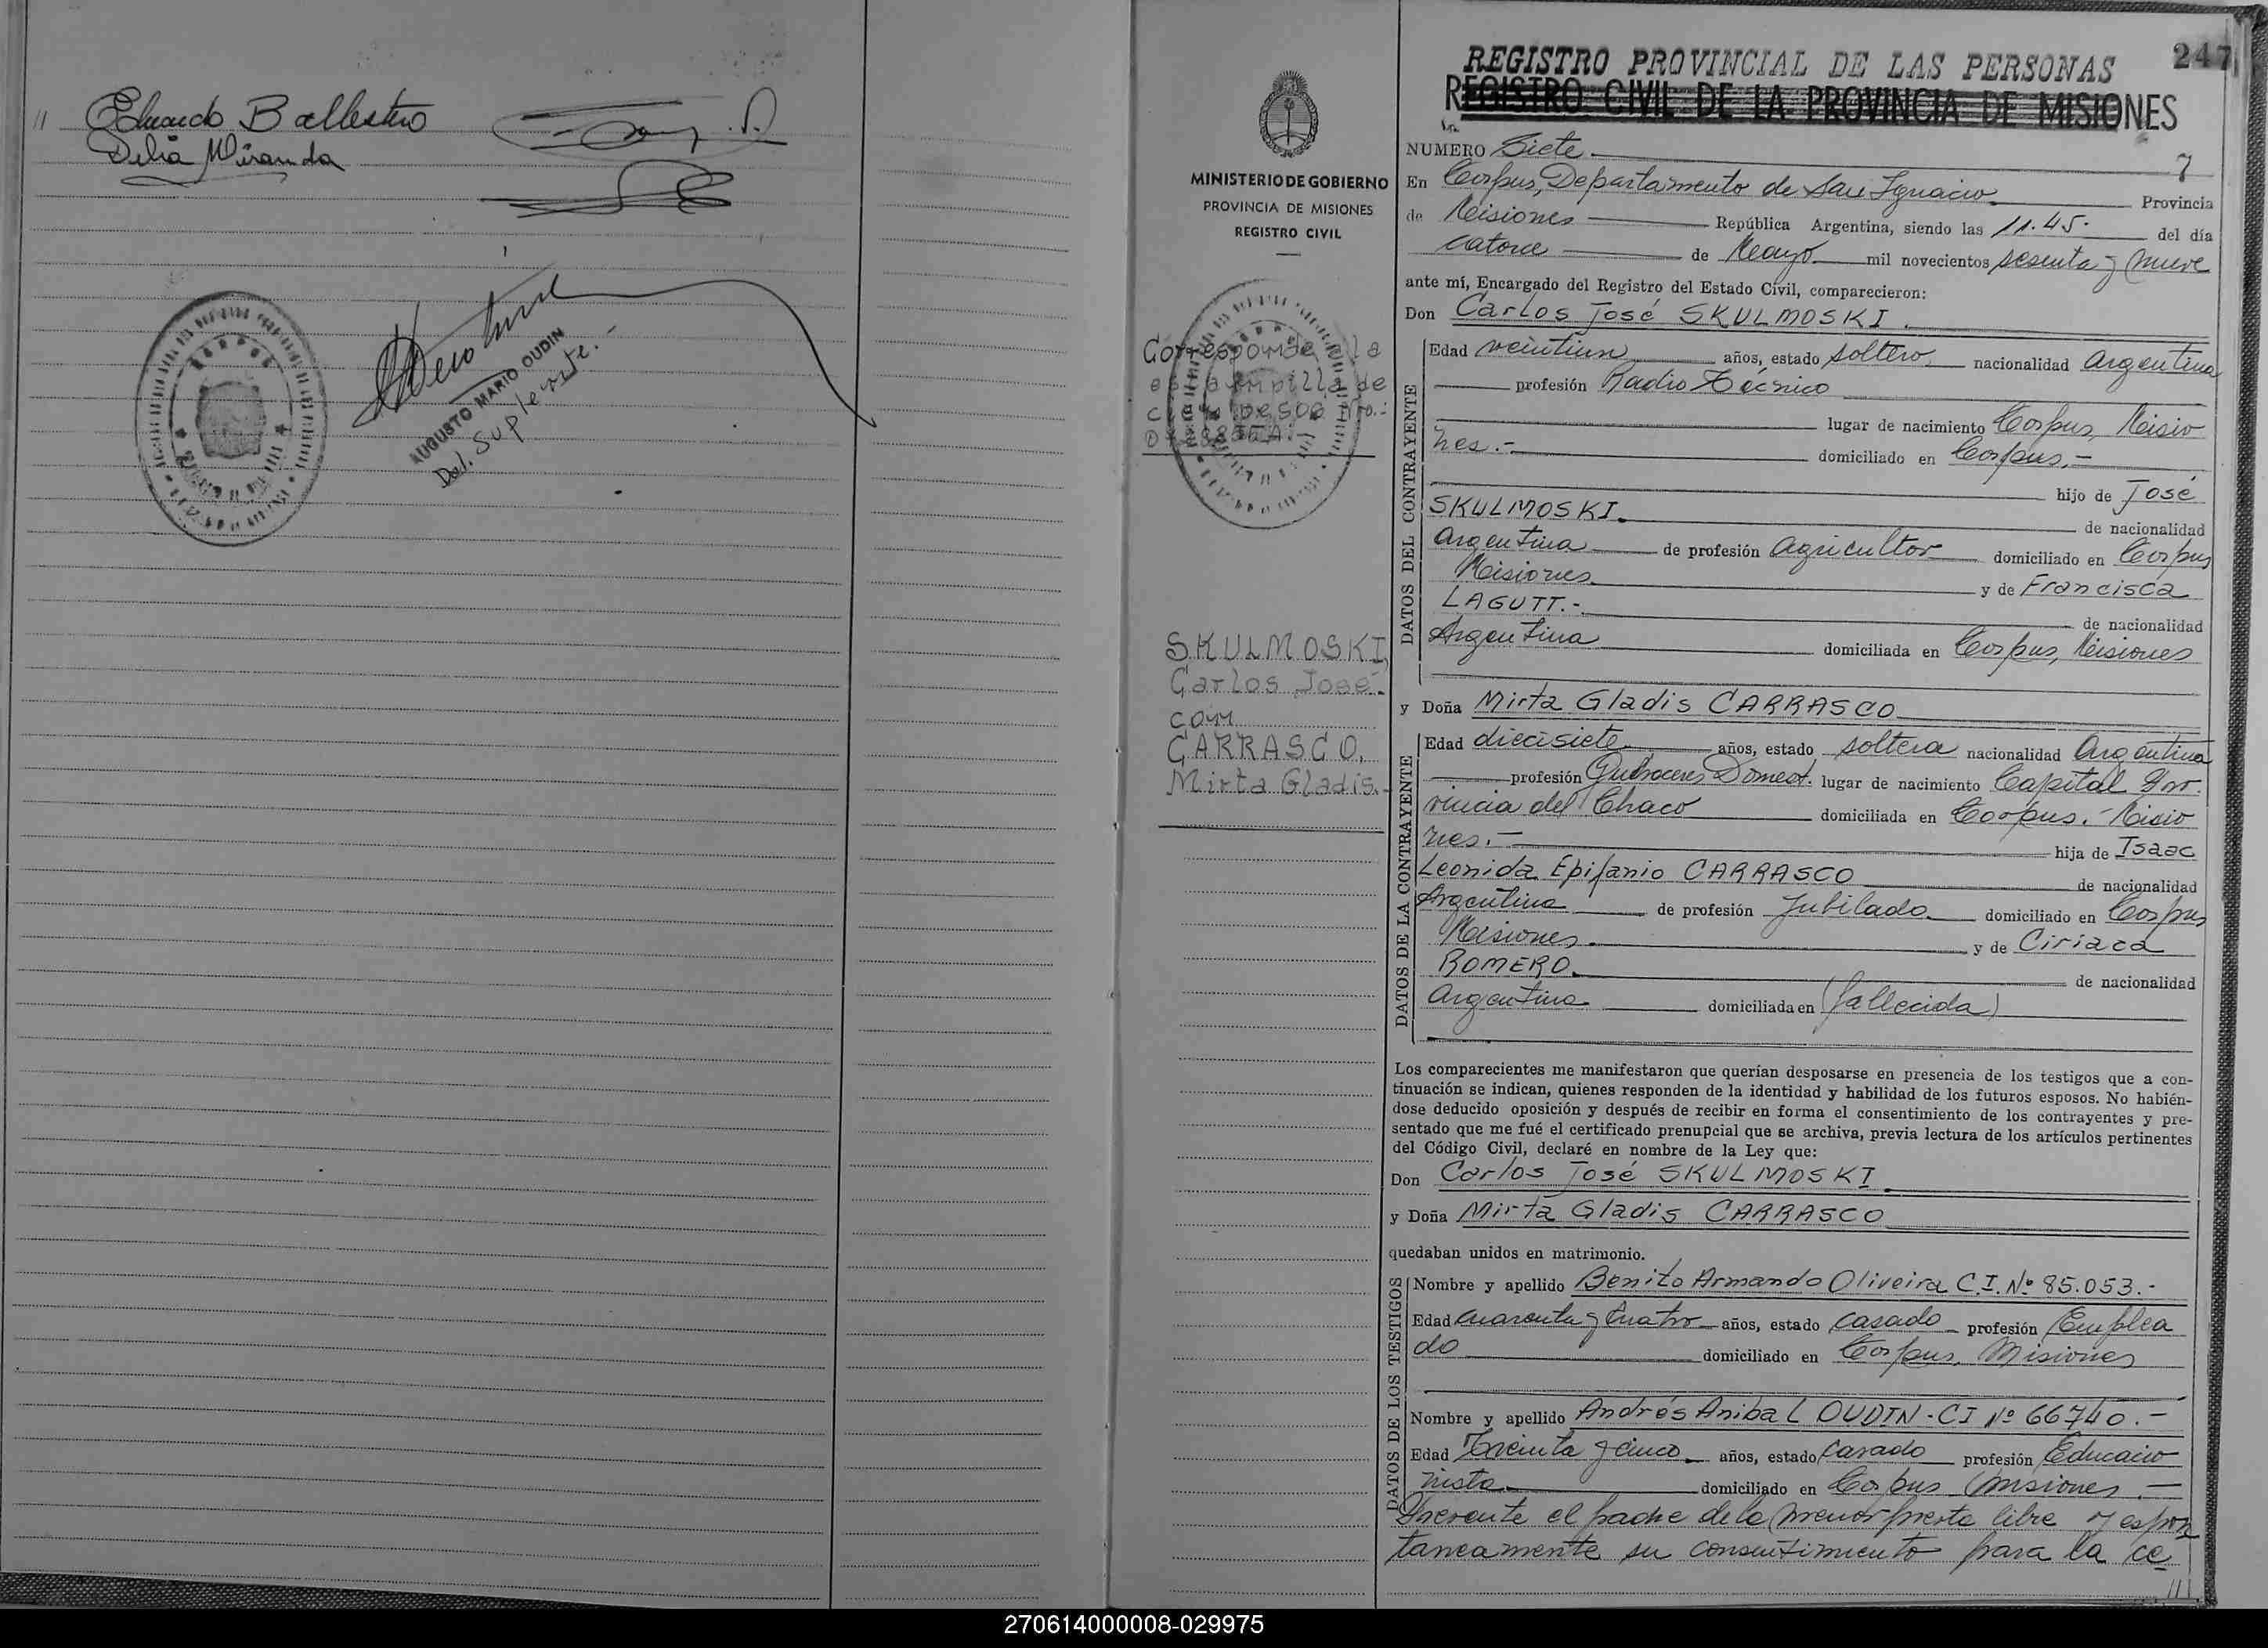 // Eduardo Ballestro
Delia Miranda
AUGUSTO MARIO OUDIN
Del. Suplente.
247
REGISTRO PROVINCIAL DE LAS PERSONAS
REGISTRO CIVIL DE LA PROVINCIA DE MISIONES
MINISTERIO DE GOBIERNO
PROVINCIA DE MISIONES
REGISTRO CIVIL
Corresponde a la
estampilla de
pesos Nro.:
SKULMOSKI,
Carlos José.-
con
CARRASCO,
Mirta Gladis.-
NUMERO Siete
7
En Corpus, Departamento de San Ignacio Provincia
de Misiones República Argentina, siendo las 11.45. del día
catorce de Mayo mil novecientos sesenta y nueve
ante mí, Encargado del Registro del Estado Civil, comparecieron:
Don Carlos José SKULMOSKI.
DATOS DEL CONTRAYENTE
Edad veintiun años, estado soltero, nacionalidad argentina
profesión Radio Técnico
lugar de nacimiento Corpus, Misio
nes.- domiciliado en Corpus.-
hijo de José
SKULMOSKI. de nacionalidad
argentina de profesión agricultor domiciliado en Corpus
Misiones y de Francisca
LAGUTT.- de nacionalidad
Argentina domiciliada en Corpus, Misiones
y Doña Mirta Gladis CARRASCO
DATOS DE LA CONTRAYENTE
Edad diecisiete años, estado soltera nacionalidad Argentina
profesión Quehaceres Domest. lugar de nacimiento Capital Pro-
vincia del Chaco domiciliada en Corpus.- Misio
nes.- hija de Isaac
Leonida Epifanio CARRASCO de nacionalidad
Argentina de profesión Jubilado domiciliado en Corpus
Misiones. y de Ciríaca
ROMERO. de nacionalidad
argentina domiciliada en (fallecida)
Los comparecientes me manifestaron que querían desposarse en presencia de los testigos que a con-
tinuación se indican, quienes responden de la identidad y habilidad de los futuros esposos. No habién-
dose deducido oposición y después de recibir en forma el consentimiento de los contrayentes y pre-
sentado que me fué el certificado prenupcial que se archiva, previa lectura de los artículos pertinentes
del Código Civil, declaré en nombre de la Ley que:
Don Carlos José SKULMOSKI.
y Doña Mirta Gladis CARRASCO
quedaban unidos en matrimonio.
DATOS DE LOS TESTIGOS
Nombre y apellido Benito Armando Oliveira C.I. Nº 85.053.-
Edad cuarenta y cuatro años, estado casado profesión Emplea
do domiciliado en Corpus, Misiones
Nombre y apellido Andrés Anibal OUDIN - CI Nº 66740.-
Edad Treinta y cinco años, estado casado profesión Educacio
nista domiciliado en Corpus Misiones.-
Presente el padre de la menor presta libre y espon
taneamente su consentimiento para la ce
///
270614000008-029975